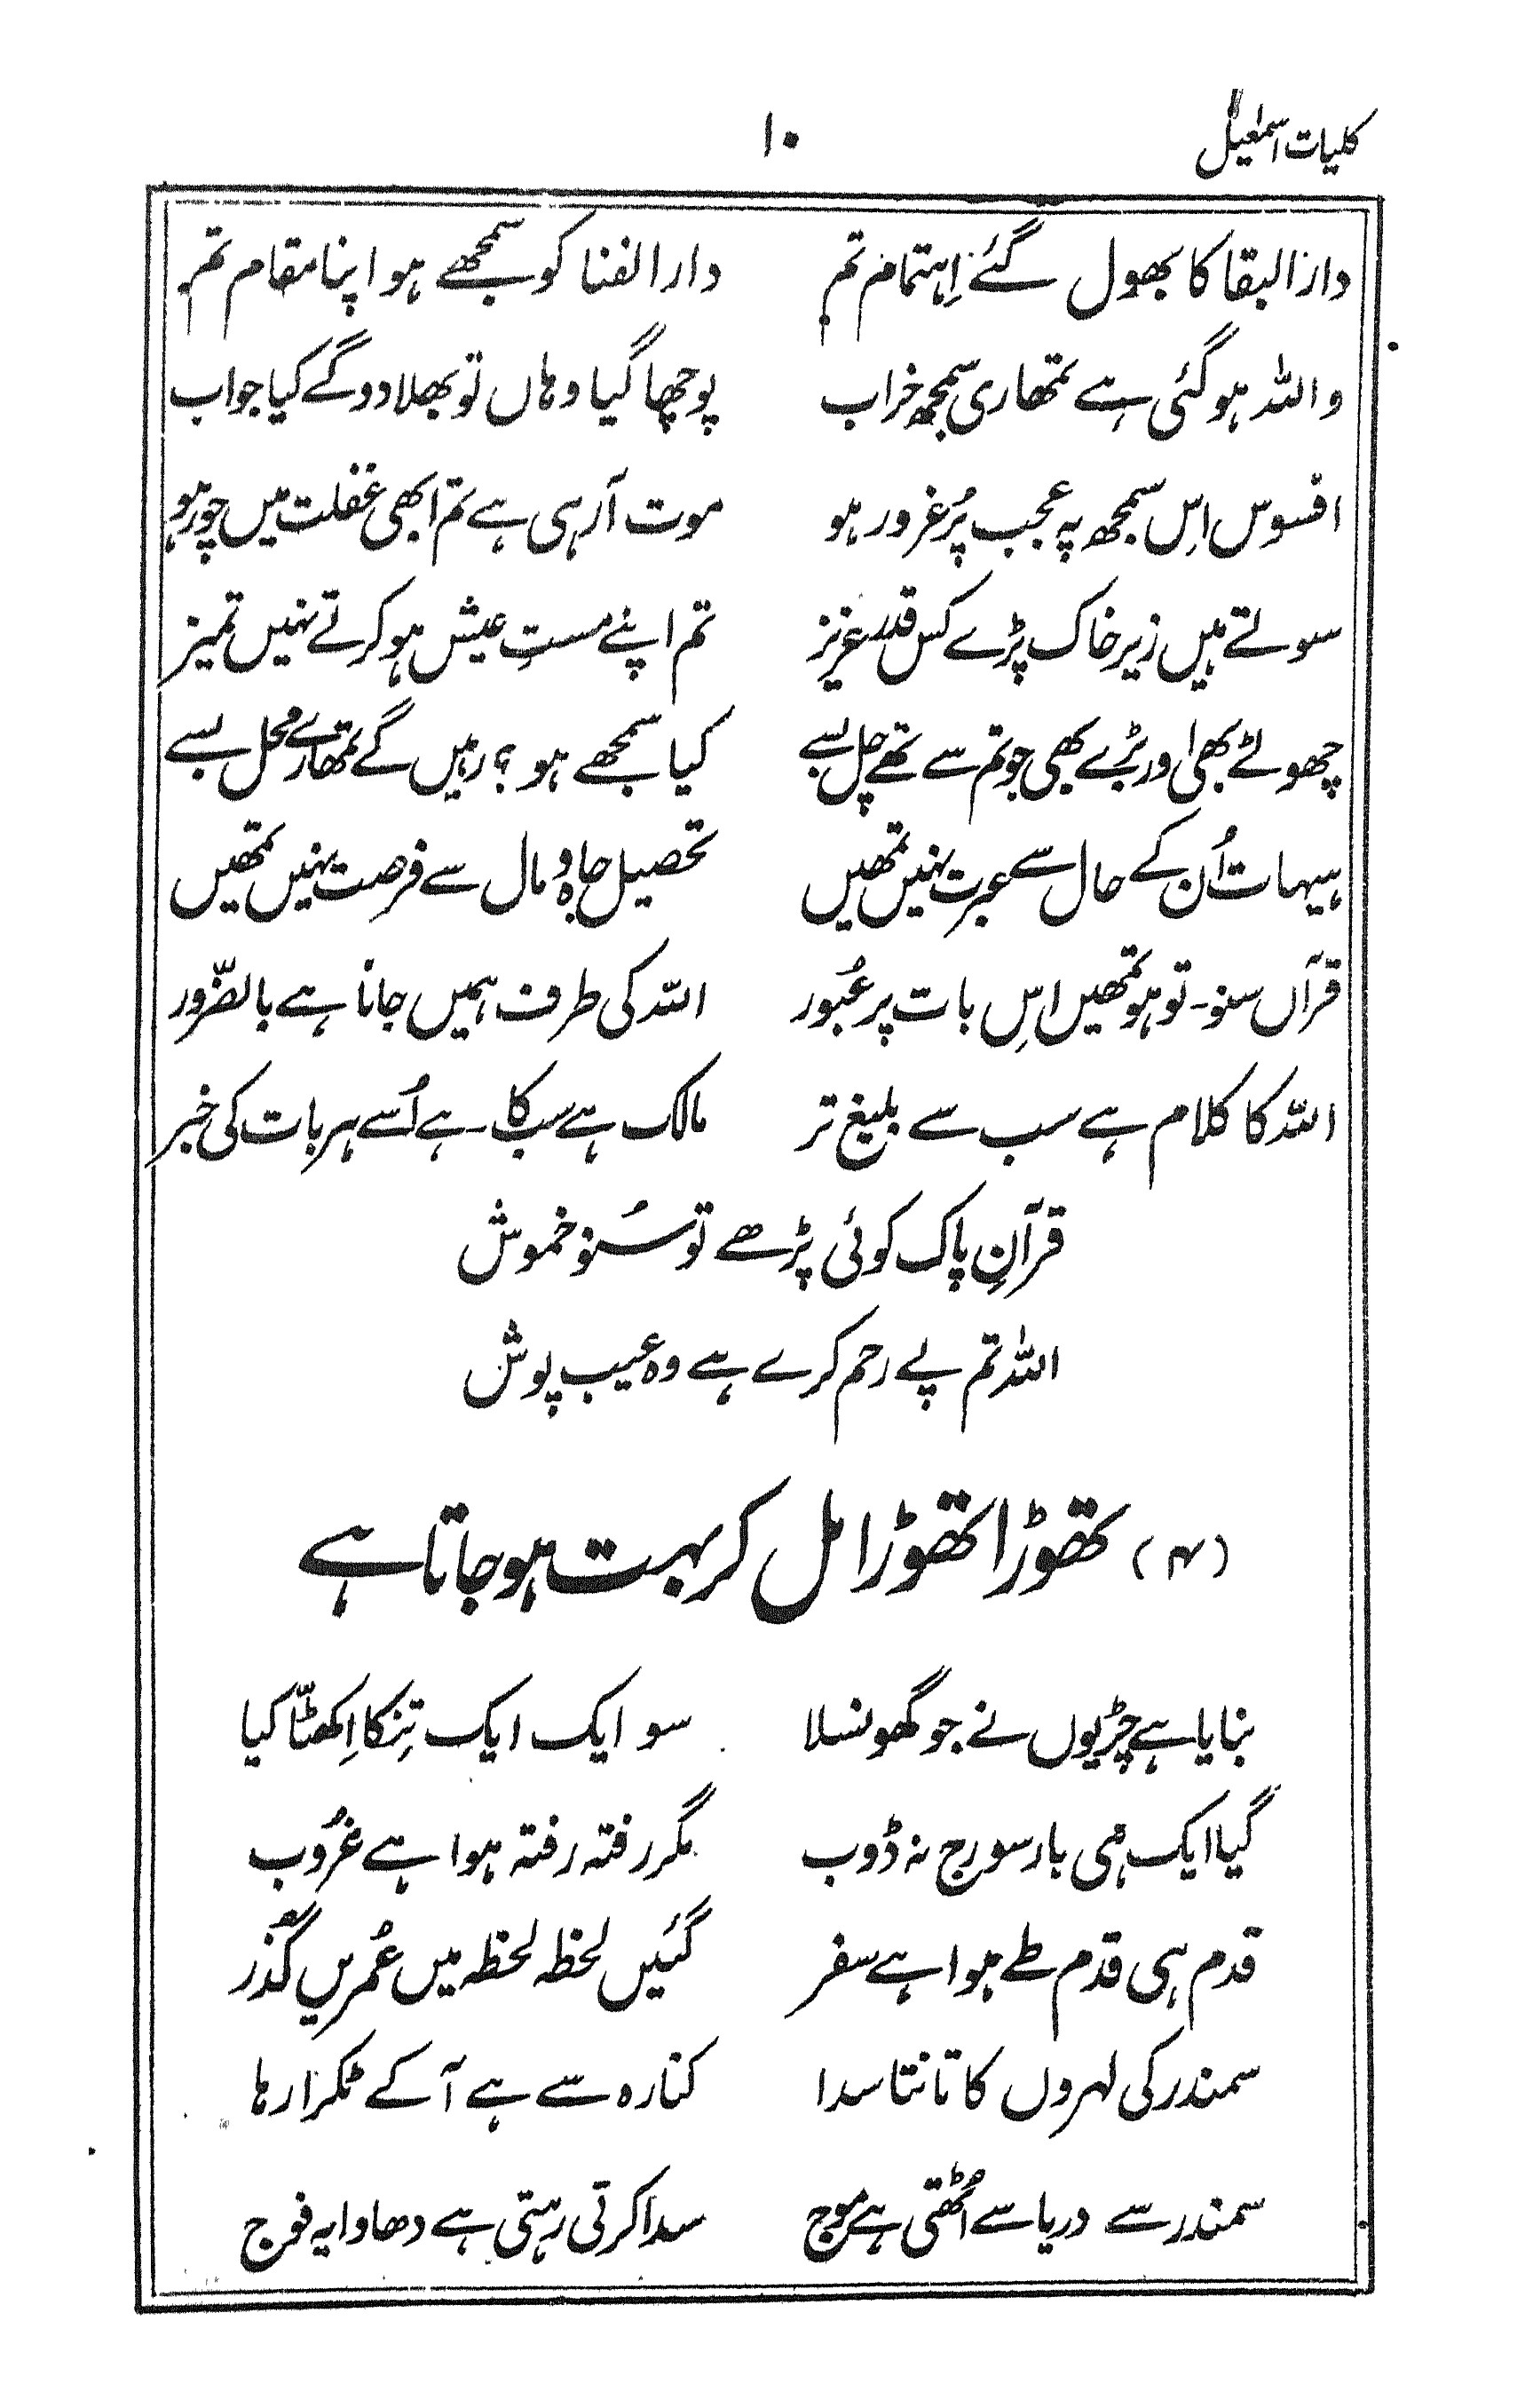 کلیات اسمٰعیل ۱۰
دارالبقا کا بھول گئے اِہتمام تم دارالفنا کو سمجھے ہو اپنا مقام تم
واللہ ہوگئی ہے تمھاری سمجھ خراب پوچھا گیا وہاں تو بھلا دوگے کیا جواب
افسوس اِس سمجھ پہ عجب پُرغرور ہو موت آرہی ہے تم ابھی غفلت میں چور ہو
سوتے ہیں زیرِ خاک پڑے کس قدر عزیز تم اپنے مستِ عیش ہو کرتے نہیں تمیز
چھوٹے بھی اور بڑے بھی جو تم سے تھے چل بسے کیا سمجھے ہو؟ رہیں گے تمھارے محل بسے
ہیہات اُن کے حال سے عبرت نہیں تمھیں تحصیل جاہ و مال سے فرصت نہیں تمھیں
قرآں سنو۔ تو ہو تمھیں اِس بات پر عُبور اللہ کی طرف ہمیں جانا ہے بالضّرور
اللہ کا کلام ہے سب سے بلیغ تر مالک ہے سب کا۔ ہے اُسے ہر بات کی خبر
قرآنِ پاک کوئی پڑھے تو سُنو خموش
اللہ تم پے رحم کرے ہے وہ عیب پوش
(۴) تھوڑا تھوڑا مل کر بہت ہو جاتا ہے
بنایا ہے چڑیوں نے جو گھونسلا سو ایک ایک تِنکا اِکھٹّا کیا
گیا ایک ہی بار سورج نہ ڈوب مگر رفتہ رفتہ ہوا ہے غرُوب
قدم ہی قدم طے ہوا ہے سفر گئیں لحظہ لحظہ میں عُمریں گُذر
سمندر کی لہروں کا تانتا سدا کنارہ سے ہے آ کے ٹکرا رہا
سمندر سے دریا سے اُٹھتی ہے موج سدا کرتی رہتی ہے دھاوا یہ فوج